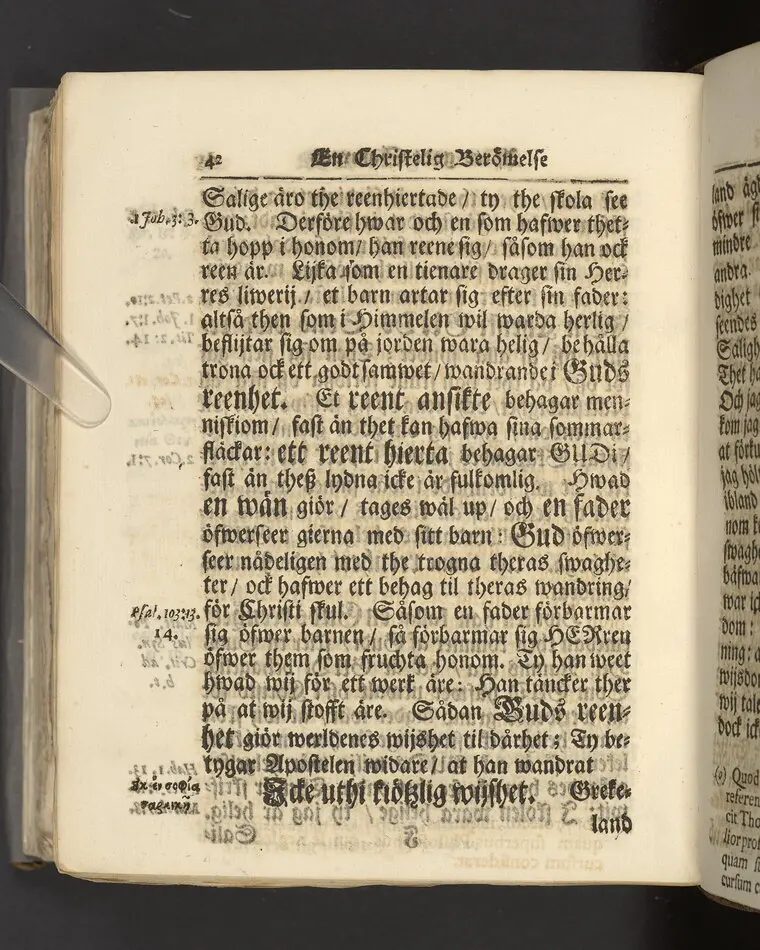 42 En Christelig Berömelse
Salige äro the reenhiertade / ty the skola see
1 Joh. 3: 3. Gud. Derföre hwar och en som hafwer thet-
ta hopp i honom / han reene sig / såsom han ock
reen är. Lijka som en tienare drager sin Her-
res liwerij / et barn artar sig efter sin fader:
altså then som i Himmelen wil warda herlig /
beflijtar sig om på jorden wara helig / behålla
trona ock ett godt samwet / wandrande i Guds
reenhet. Et reent ansikte behagar men-
niskiom / fast än thet kan hafwa sina sommar-
fläckar: ett reent hierta behagar GUDi /
fast än theß lydna icke är fulkomlig. Hwad
en wän giör / tages wäl up / och en fader
öfwerseer gierna med sitt barn: Gud öfwer-
seer nådeligen med the trogna theras swaghe-
ter / ock hafwer ett behag til theras wandring /
Psal. 103: 13. för Christi skul. Såsom en fader förbarmar
14. sig öfwer barnen / så förbarmar sig HERren
öfwer them som fruchta honom. Ty han weet
hwad wij för ett werk äre: Han täncker ther
på at wij stofft äre. Sådan Guds reen-
het giör werldenes wijshet til dårhet; Ty be-
tygar Apostelen widare / at han wandrat
Icke uthi kiötzlig wijshet. Greke-
land